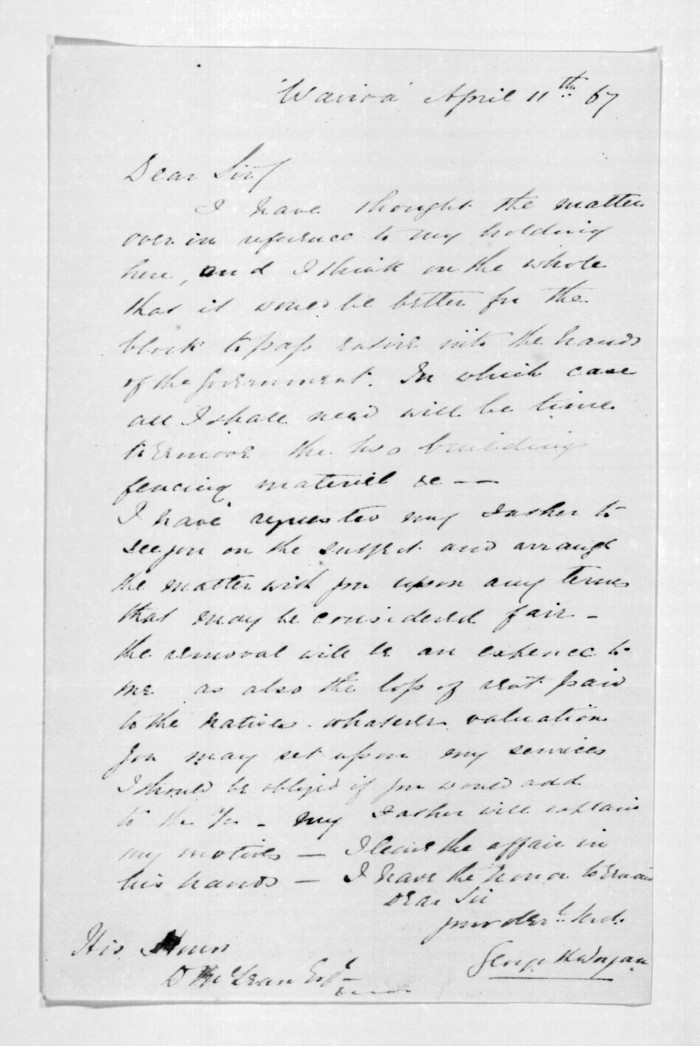 'Wairoa' April 11th 67
Dear Sir/
I have thought the matter
over in reference to my holding
here, and I think on the whole
that it would be better for the
block to pass entire into the hands
of the Government. In which case
all I shall need will be time
to remove the two buildings
fencing material &c --
I have requested my Father to
see you on the subject and arrange
the matter with you upon any terms
that may be considered fair -
the removal will be an expence to
me as also the loss of rent paid
to the natives. whatever valuation
you may set upon my services
I should be obliged if you would add
to the - my Father will explain
my motives - I leave the affair in
his hands - I have the honor to remain
Dear Sir
your
George Worgan
His Honor
D McLean Esqr